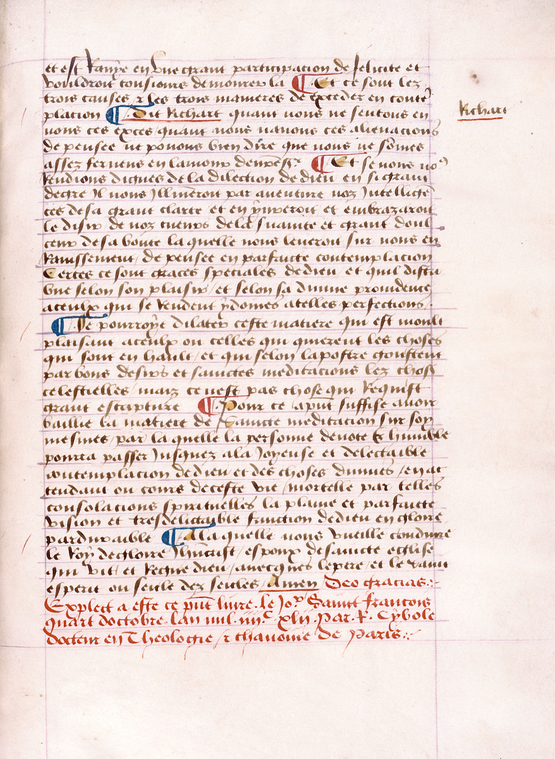 et est Ravye en une grant participacion de felicite et
vouldroit tousiours demourer la ¶ Et ce sont les
trois causes & les trois manieres de exceder en contem
placion ¶ Dit Richart quant nous ne sentons en
Richart
nous ces exces quant nous navons ces alienacions
de pensee ne povons bien dire que nous ne sommes
assez fervens en lamour ¶ Et se nous no9
Rendions dignes de la dilection de dieu en si grant
degre Il nous Illumineroit par aventure noz Intellige
ces de sa grant clarte et en et embrazeroit
le desir de noz cueurs de la suavite et grant doul
ceur de sa bonte la quelle nous leveroit sur nous en
Ravissement de pensee en parfaicte contemplacion
Certes ce sont graces speciales de dieu et quil distri
bue selon son plaisir et selon sa divine providence
a ceulx qui se Rendent ydoines a telles perfections
¶ Je pourroye dilater ceste matiere qui est moult
plaisant a ceulx ou celles qui quierent les choses
qui sont en hault et qui selon lapostre goustent
par bons desirs et sainctes meditacions les choses
celestielles maiz ce nest pas chose qui Requist
grant escripture ¶ Pour ce suffise avoir
baillie la matiere de saincte meditacion sur soy
mesmes par la quelle la personne devote & humble
pourra passer Jusques a la Joyeuse et delectable
contemplacion de dieu et des choses divines en at
tendant ou cours de ceste vie mortelle par telles
consolacions spirituelles la plaine et parfaicte
vision et tresdelictable fruicion de dieu en gloire
pardurable ¶ A la quelle nous vueille conduire
le Roy de gloire Jhucrist espoux de saincte eglise
qui vit et Regne dieu avecques le pere et le saint
esperit ou seicle dez seicles Amen Deo gracias
Explecit a este ce pnt livre le Jor Saint francois
quart doctobre lan mil iiijc xlij Par R. Cybole
docteur en Theologie & chanoine de Paris